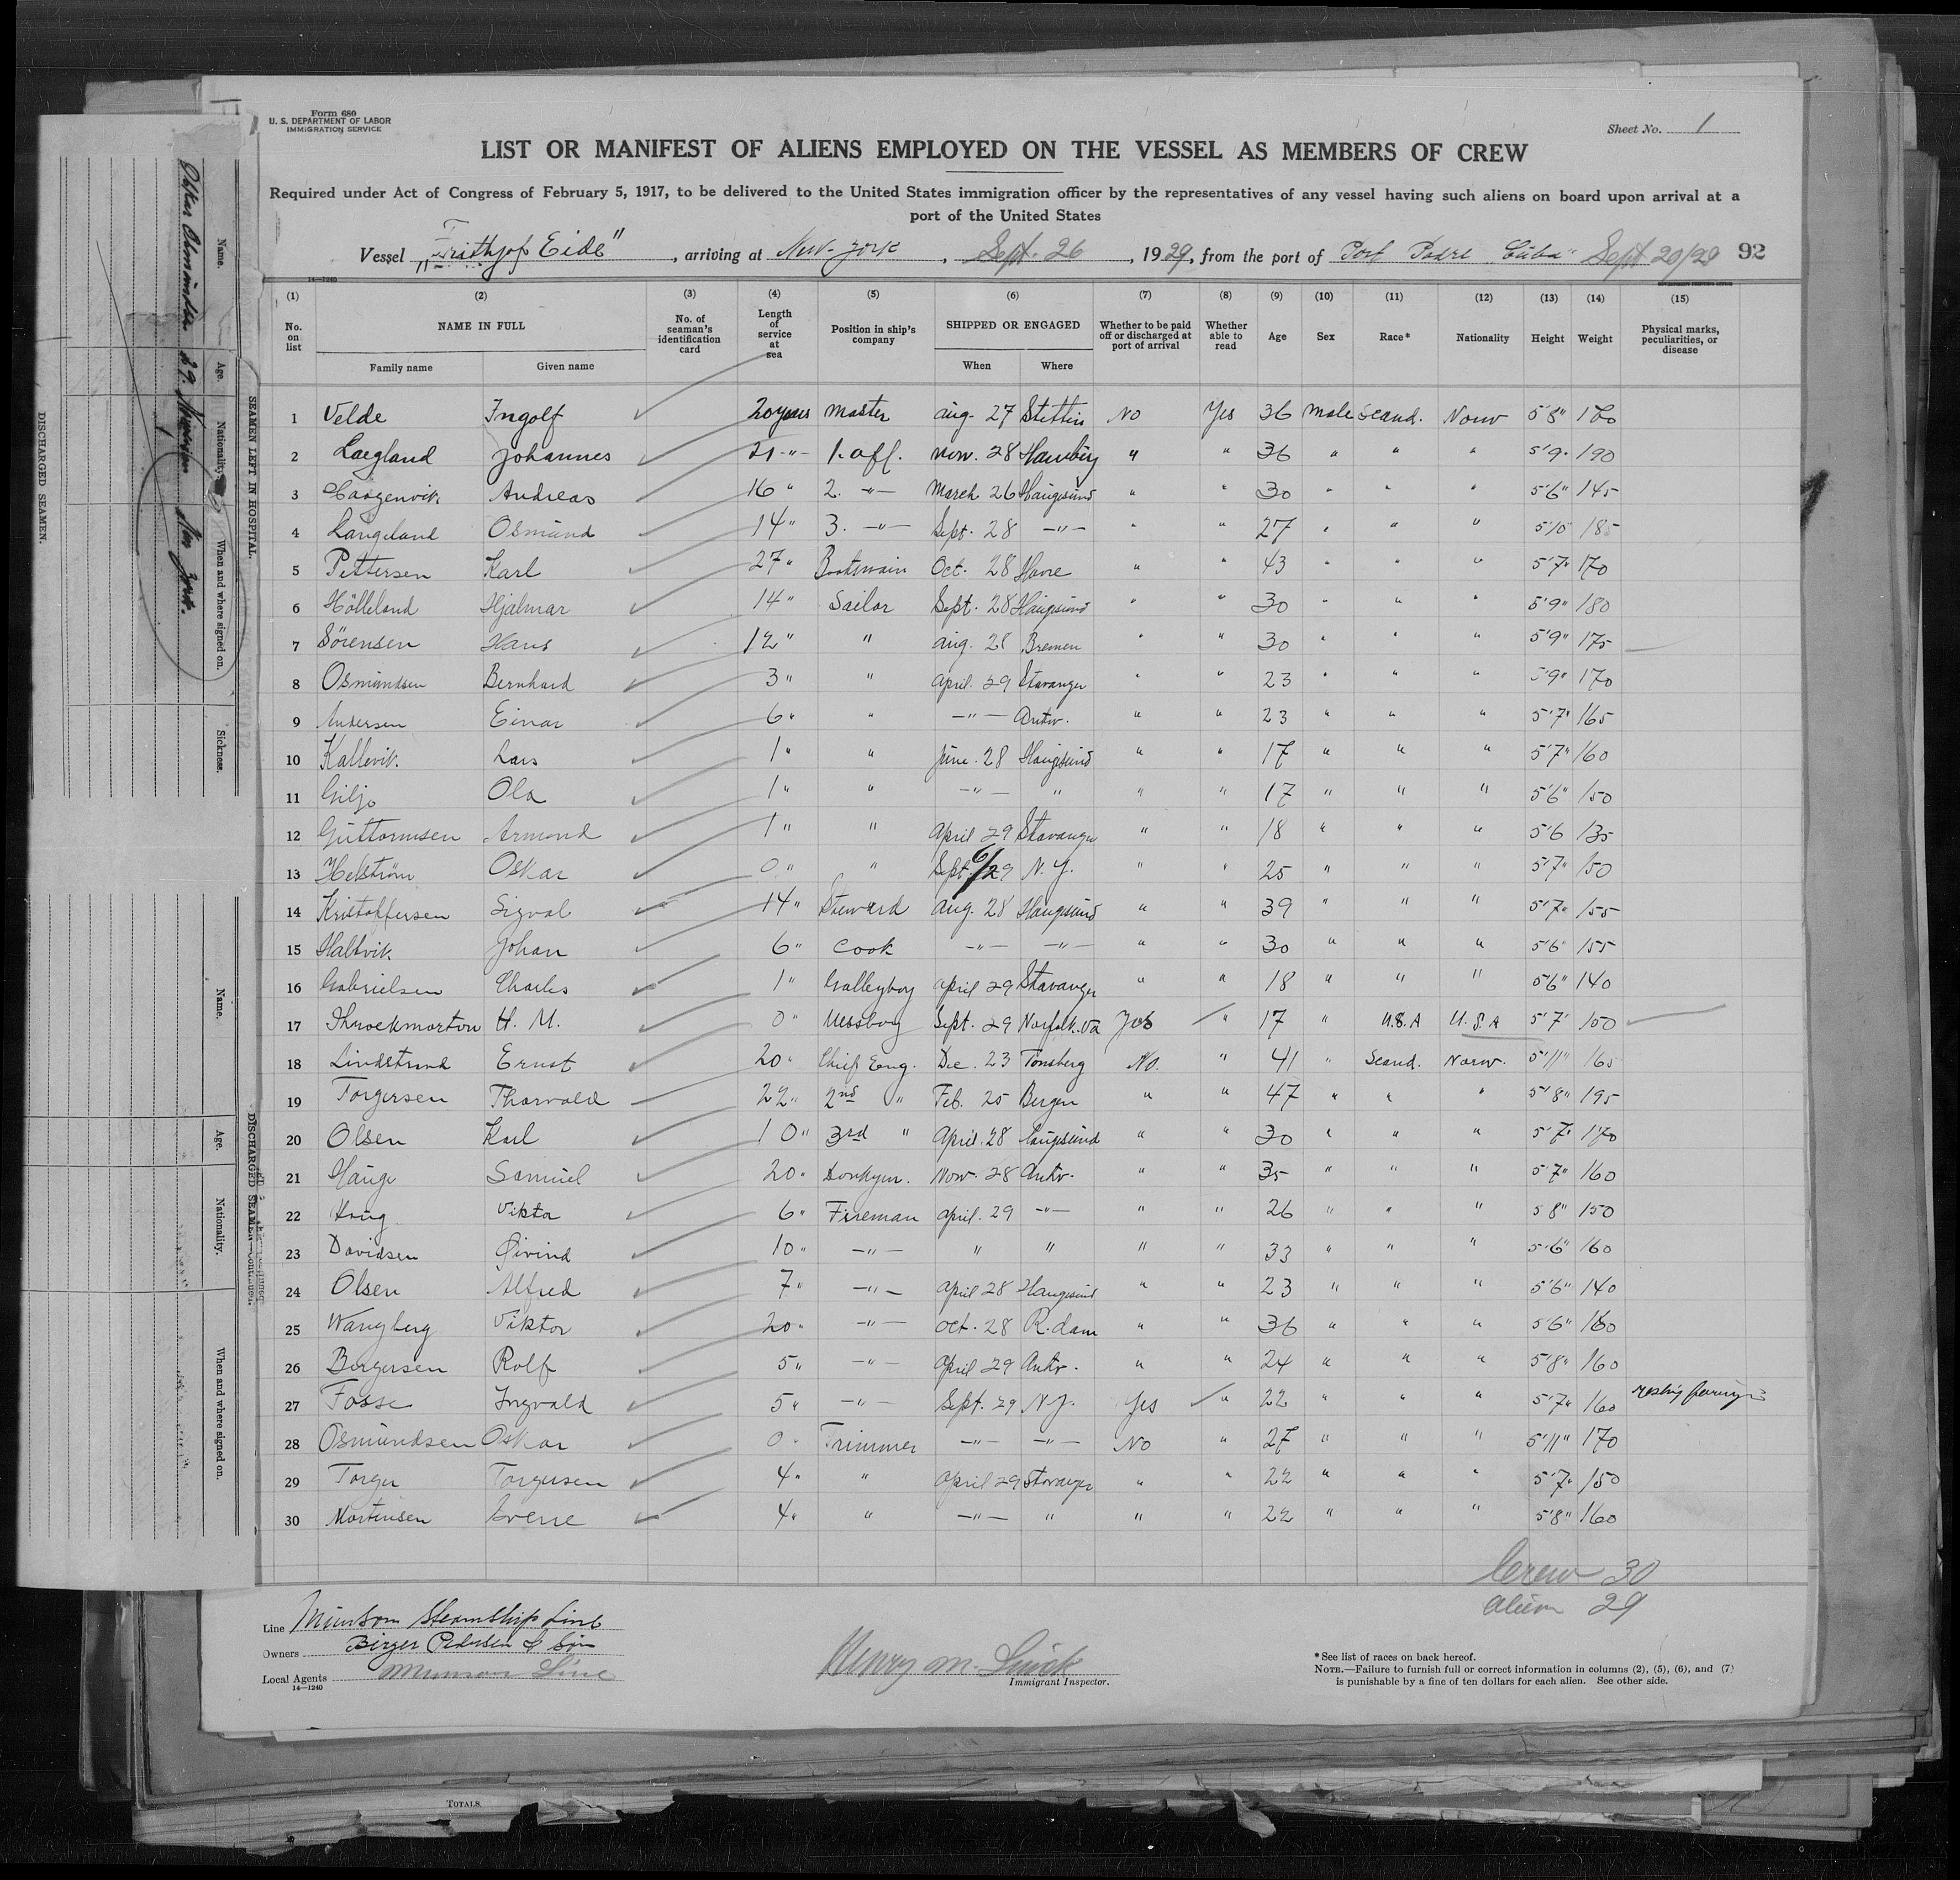 Form 680
U. S. DEPARTMENT OF LABOR
IMMIGRATION SERVICE
Sheet No. 1
LIST OR MANIFEST OF ALIENS EMPLOYED ON THE VESSEL AS MEMBERS OF CREW
Required under Act of Congress of February 5, 1917, to be delivered to the United States immigration officer by the representatives of any vessel having such aliens on board upon arrival at a
port of the United States
Vessel "Frithjof Eide", arriving at New-York, Sept. 26, 1929, from the port of Port Padre Cuba Sept 20/29 92
14—1240
(1) (2) (3) (4) (5) (6) (7) (8) (9) (10) (11) (12) (13) (14) (15)
No. on list NAME IN FULL No. of seaman's identification card Length of service at sea Position in ship's company SHIPPED OR ENGAGED Whether to be paid off or discharged at port of arrival Whether able to read Age Sex Race* Nationality Height Weight Physical marks, peculiarities, or disease
Family name Given name When Where
1 Velde Ingolf 20 years Master Aug. 27 Stettin No Yes 36 Male Scand. Norw 5'8"
2 Laegland Johannes 21 -"- 1. off. Nov. 28 Hamburg " " 36 " " " 5'9" 190
3 Andreas 16 " 2. -"- March 26 Haugesund " " 30 " " " 5'6" 145
4 Langeland Osmund 14 " 3. -"- Sept. 28 -"- " " 27 " " " 5'10" 185
5 Pettersen Karl 27 " Boatswain Oct. 28 Havre " " 43 " " " 5'7" 170
6 Hölleland Hjalmar 14 " Sailor Sept. 28 Haugesund " " 30 " " " 5'9" 180
7 Sörensen Hans 12 " " Aug. 28 Bremen " " 30 " " " 5'9" 175
8 Osmundsen Bernhard 3 " " April. 29 Stavanger " " 23 " " " 5'9" 170
9 Andersen Einar 6 " " -"- Antw. " " 23 " " " 5'7" 165
10 Kallevik Lars 1 " " June. 28 Haugesund " " 17 " " " 5'7" 160
11 Giljo Ola 1 " " -"- " " " 17 " " " 5'6" 150
12 Guttormsen Armond 1 " " April 29 Stavanger " " 18 " " " 5'6 135
13 Helström Oskar 0 " " Sept. 6/29 N. Y. " " 25 " " " 5'7" 150
14 Kristoffersen Sigval 14 " Steward Aug. 28 Haugesund " " 39 " " " 5'7" 155
15 Johan 6 " Cook -"- -"- " " 30 " " " 5'6" 155
16 Gabrielsen Charles 1 " Galleyboy April 29 Stavanger " " 18 " " " 5'6" 140
17 Throckmorton H. M. 0 " Messboy Sept. 29 Norfolk. Va Yes " 17 " U.S.A U.S.A 5'7" 150
18 Lindstrand Ernst 20 " Chief Eng. Dec. 23 Tonsberg No. " 41 " Scand. Norw. 5'11" 165
19 Torgersen Thorvald 22 " 2nd " Feb. 25 Bergen " " 47 " " " 5'8" 195
20 Olsen Karl 10 " 3rd " April. 28 Haugesund " " 30 " " " 5'7" 170
21 Hauge Samuel 20 " Donkeym. Nov. 28 Antw. " " 35 " " " 5'7" 160
22 Viktor 6 " Fireman April. 29 -"- " " 26 " " " 5'8" 150
23 Davidsen Øivind 10 " -"- " " " " 33 " " " 5'6" 160
24 Olsen Alfred 7 " -"- April 28 Haugesund " " 23 " " " 5'6" 140
25 Wangberg Viktor 20 " -"- Oct. 28 R.dam " " 36 " " " 5'6" 160
26 Birgersen Rolf 5 " -"- April 29 Antw. " " 24 " " " 5'8" 160
27 Fosse Ingvald 5 " -"- Sept. 29 N.Y. Yes " 22 " " " 5'7" 160
28 Osmundsen Oskar 0 " Trimmer -"- -"- No " 27 " " " 5'11" 170
29 Torger Torgersen 4 " " April 29 Stavanger " " 22 " " " 5'7" 150
30 Mortensen Sverre 4 " " -"- " " " 22 " " " 5'8" 160
Crew 30
Alien 29
Line Munson Steamship Line
Owners Birger Pedersen & Sön
Local Agents Munson Line
14—1240
Henry M.
Immigrant Inspector.
* See list of races on back hereof.
NOTE.—Failure to furnish full or correct information in columns (2), (5), (6), and (7)
is punishable by a fine of ten dollars for each alien. See other side.
TOTALS.
SEAMEN LEFT IN HOSPITAL.
Name. Age. Nationality. When and where signed on. Sickness.
Oskar 29. New York.
DISCHARGED SEAMEN.
DISCHARGED SEAMEN—Continued.
Name. Age. Nationality. When and where signed on.